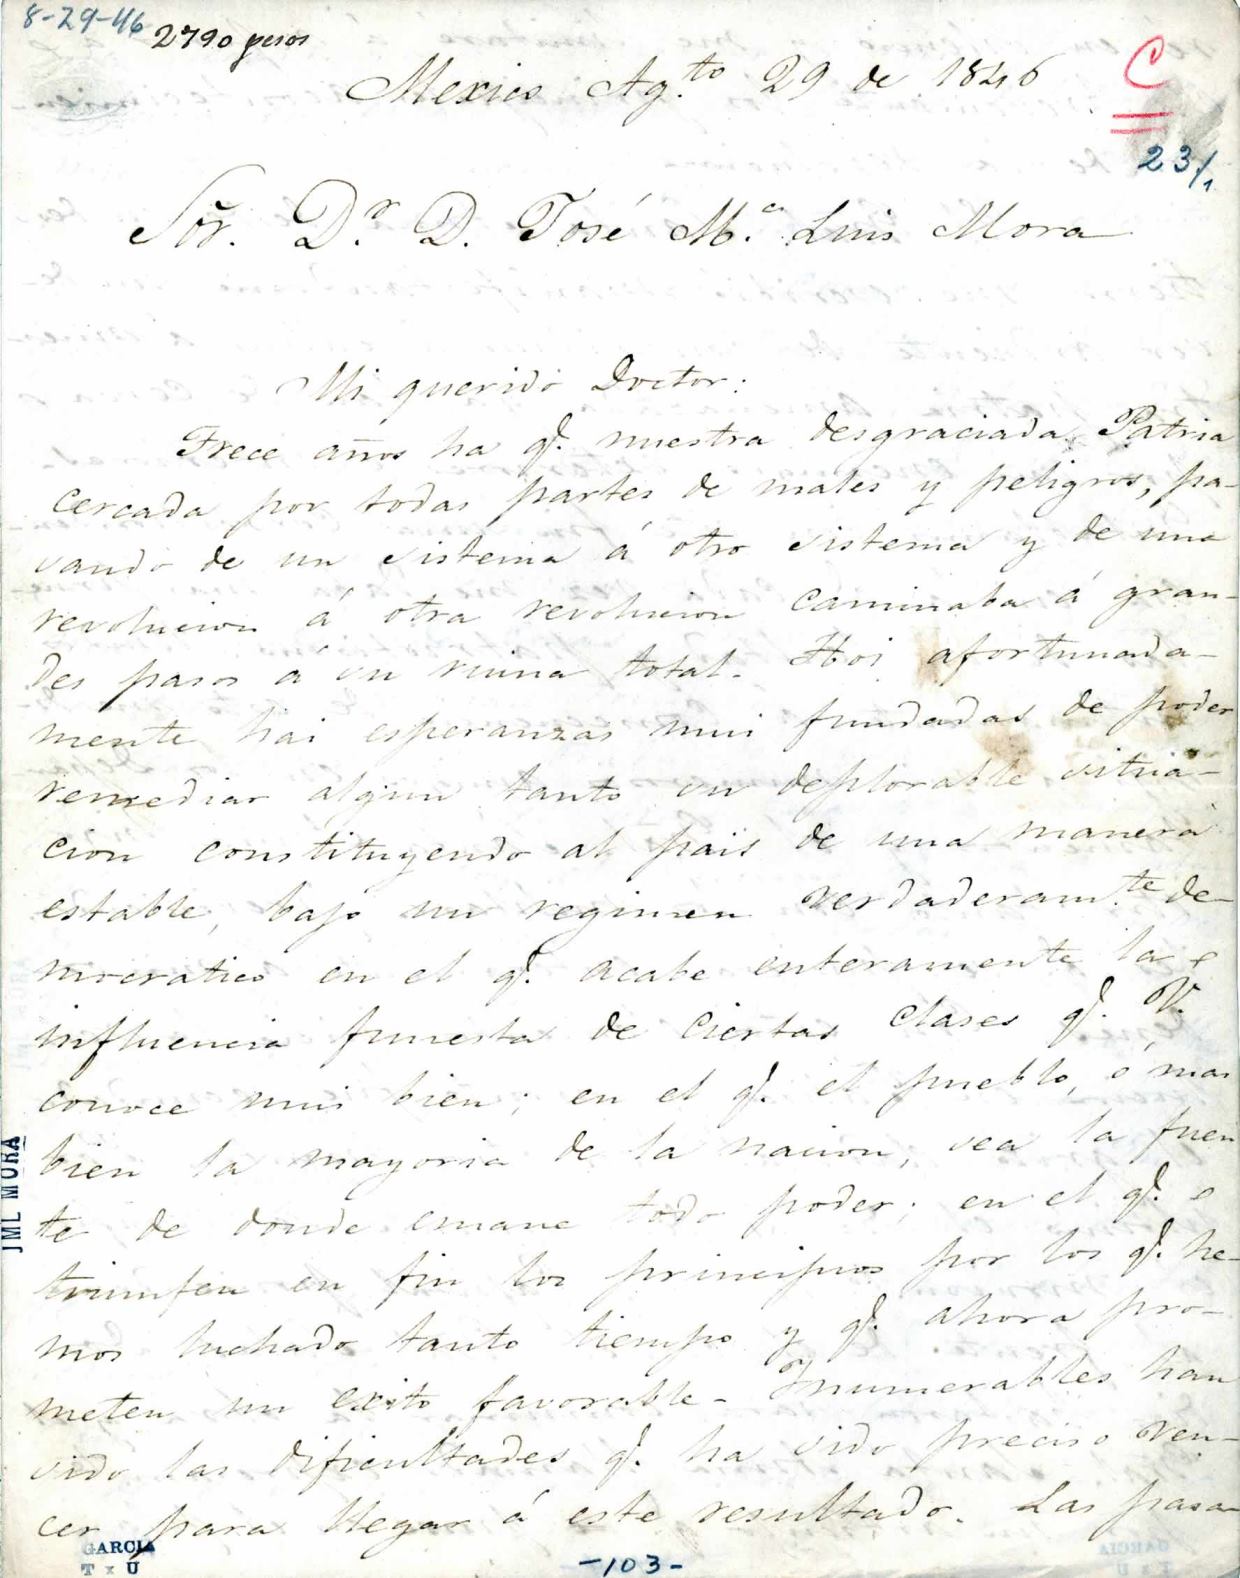 8-29-46
2790 pesos
Mexico Ag.to 29 de 1846
C
23/1
Sōr. D.r D. José M.a Luis Mora
Mi querido Doctor:
Trece años ha q.e nuestra desgraciada Patria
cercada por todas partes de males y peligros, pa-
sando de un sistema á otro sistema y de una
revolucion á otra revolucion caminaba á gran-
des pasos á su ruina total. Hoi afortunada-
mente hai esperanzas mui fundadas de poder
remediar algun tanto su deplorable situa-
cion constituyendo al pais de una manera
estable, bajo un regimen verdaderam.te de-
mocratico en el q.e acabe enteramente la
influencia funesta de ciertas clases q.e V.
conoce mui bien; en el q.e el pueblo, ó mas
bien la mayoria de la nacion, sea la fuen
te de donde emane todo poder; en el q.e
triunfen en fin los principios por los q.e he-
mos luchado tanto tiempo y q.e ahora pro-
meten un exito favorable. Inumerables han
sido las dificultades q.e ha sido preciso ven-
cer para llegar á este resultado. Las pasa
JML MORA
GARCIA
T x U
-103-